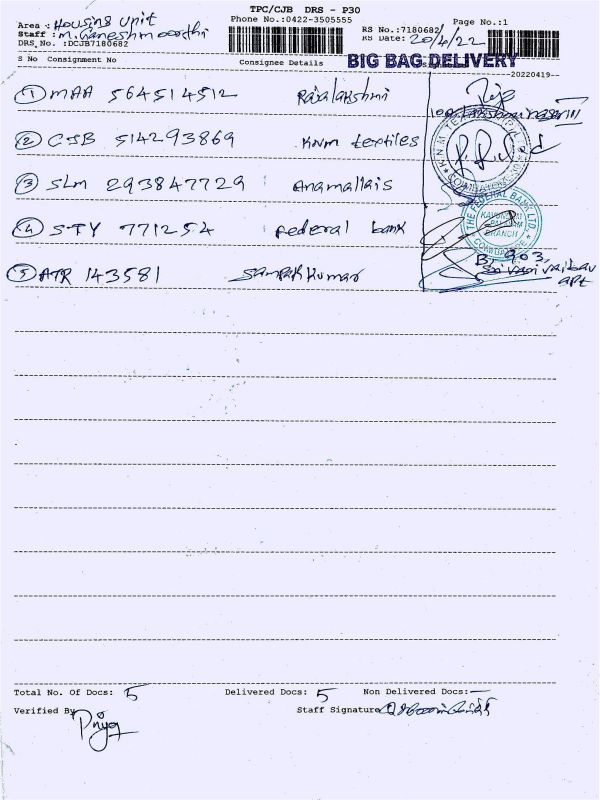 TPC/CJB DRS - P30
Area : Housing Unit
Phone No.:0422-3505555
Page No.:1
Staff : M. Ganeshmoorthi
RS No.:7180682
DRS No. :DCJB7180682
RS Date: 20/4/22
S No Consignment No
Consignee Details
BIG BAG DELIVERY
--20220419--
1 MAA 564514512 Rajalakshmi
Raja
2 CJB 514293869 KNM textiles
KNM TEX
COIMBATORE
3 SLM 293847729 Anamallais
4 STY 771254 Federal bank
THE FEDERAL BANK LTD.
BRANCH
COIMBATORE
5 ATR 143581 Sampath Kumar
B, 903,
apt
Total No. Of Docs: 5
Delivered Docs: 5
Non Delivered Docs: —
Verified By
Priya
Staff Signature